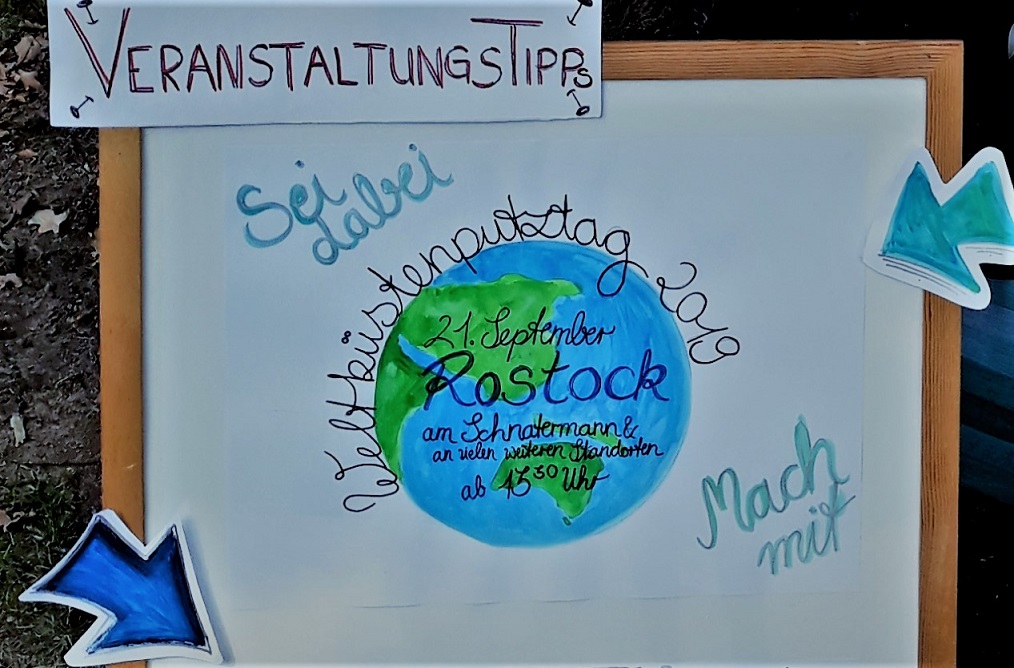 VERANSTALTUNGSTIPPS
Sei
dabei
Weltküstenputztag 2019
21. September
Rostock
am Schnatermann &
an vielen weiteren Standorten
ab 15³⁰ Uhr
Mach
mit